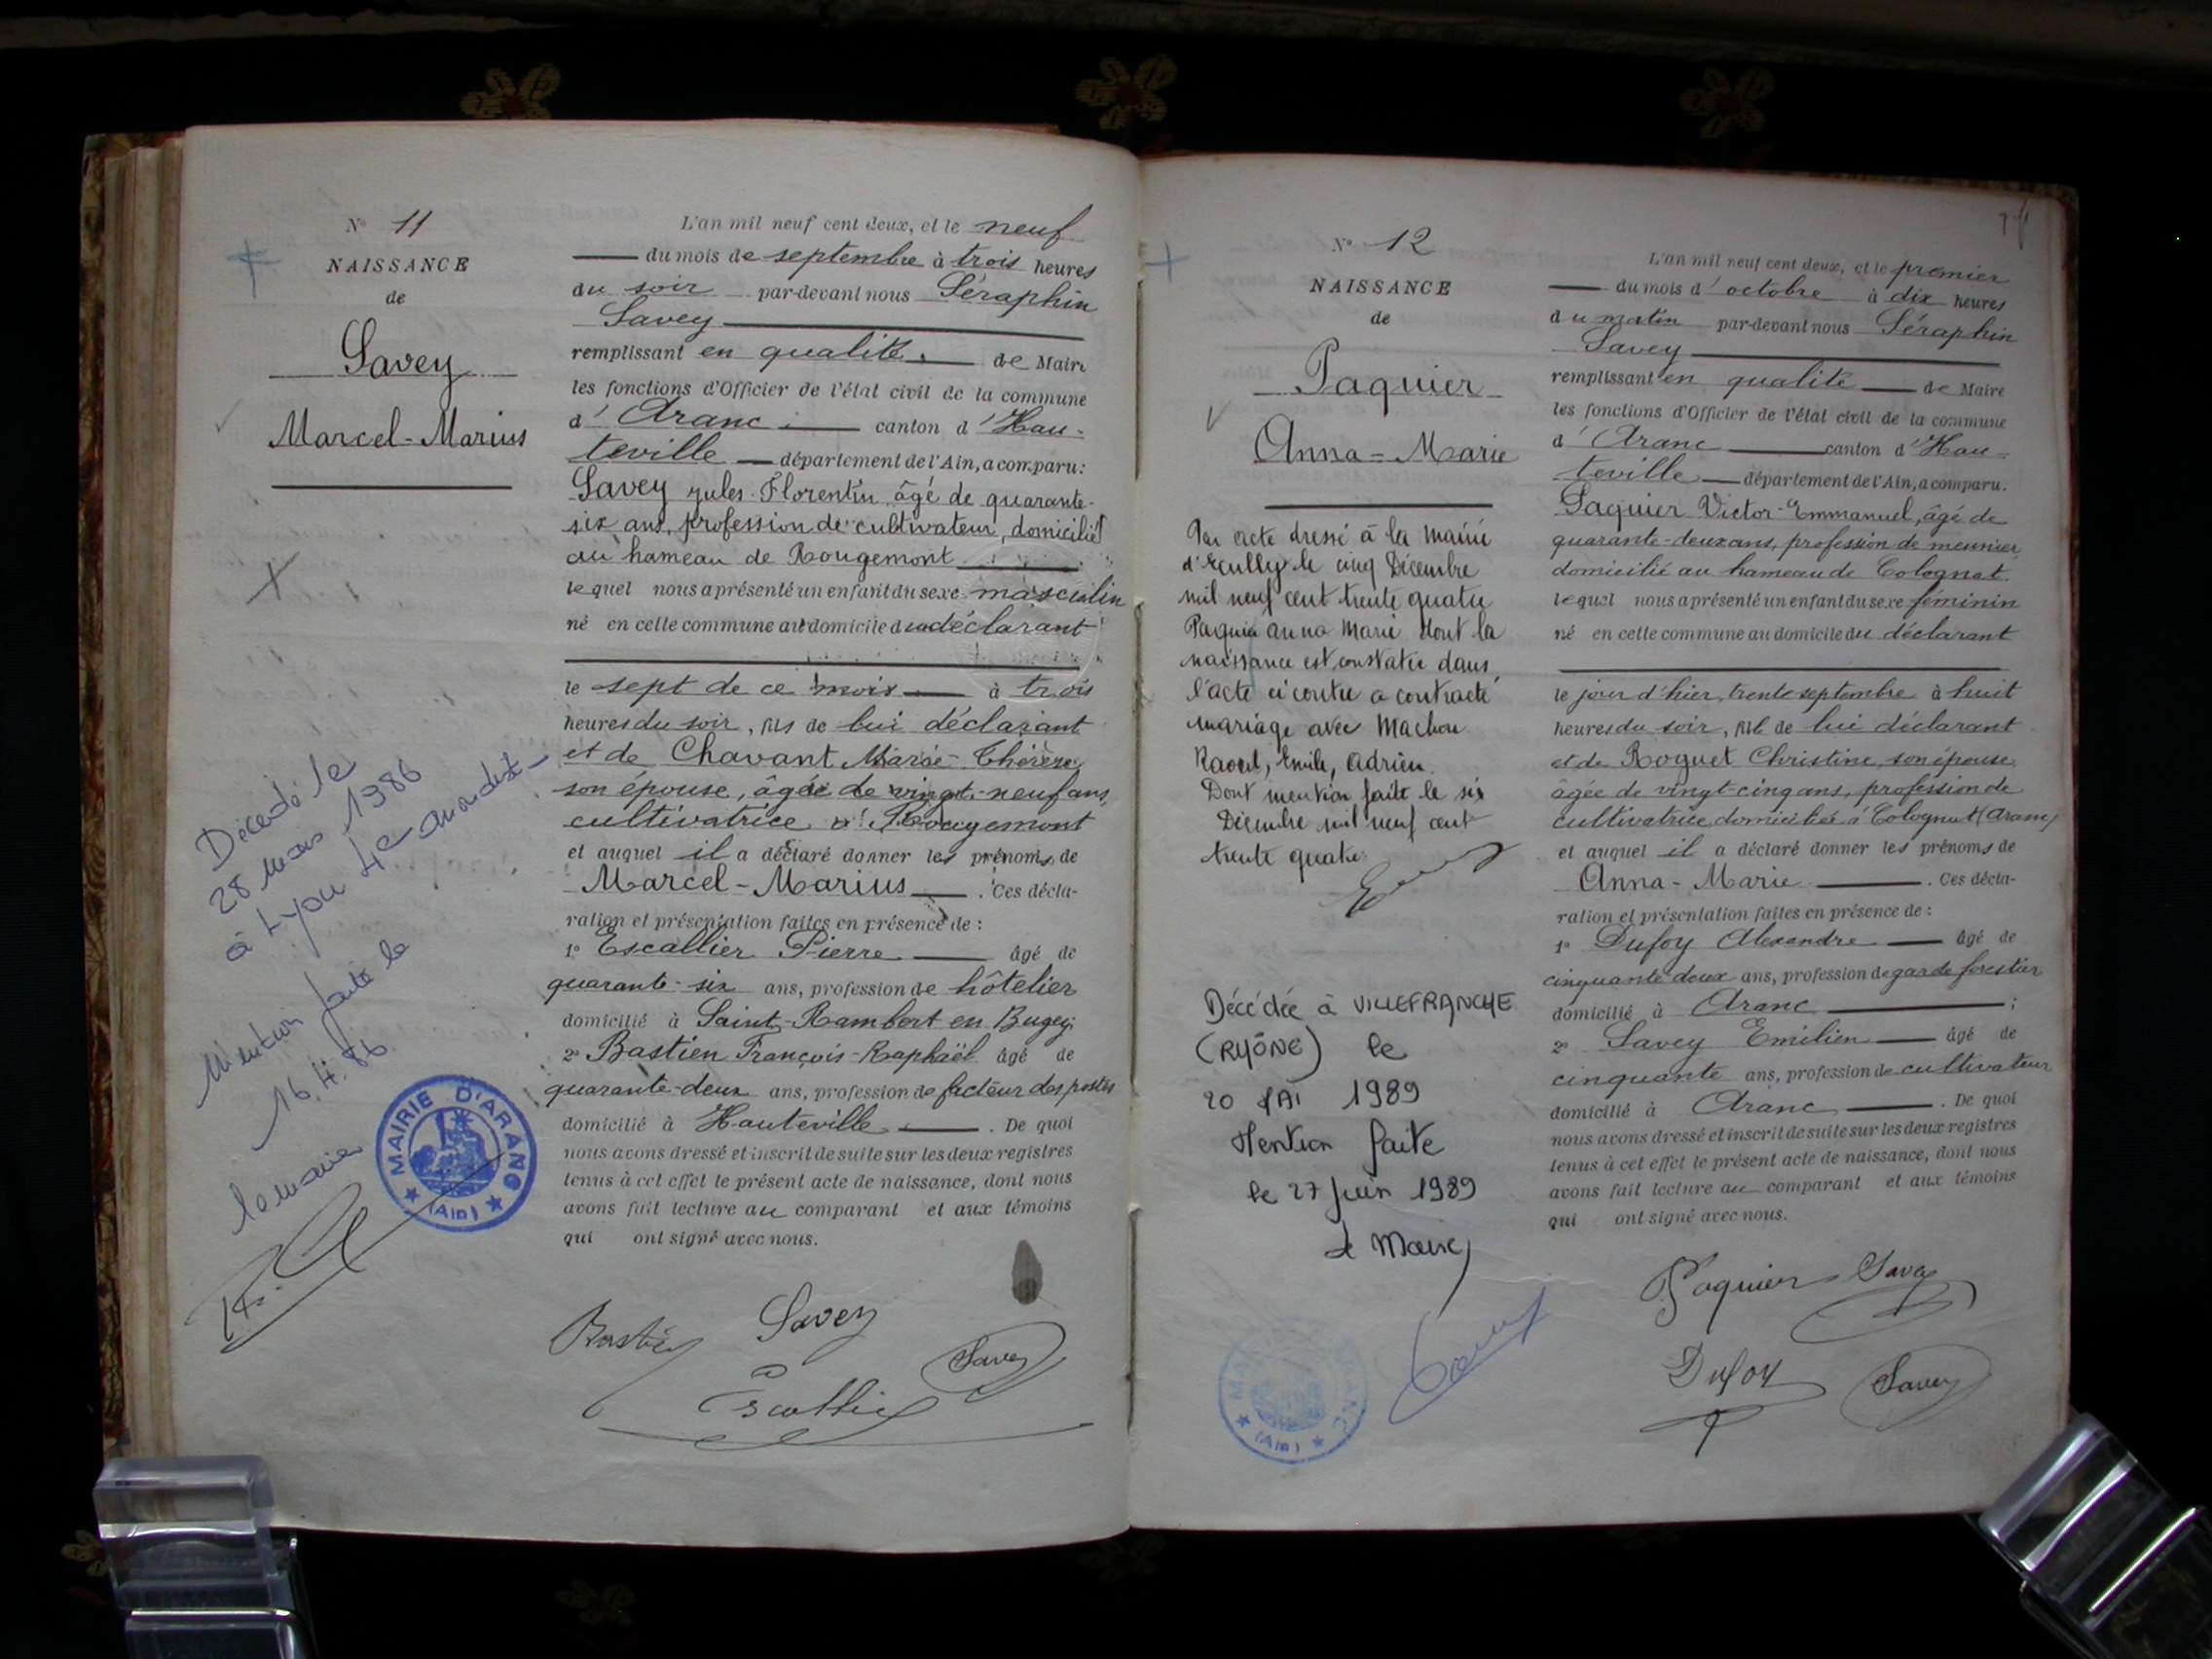 N° 11
NAISSANCE
de
Savey
Marcel-Marius
Décédé le
28 mars 1986
à Lyon 4e arrondist
Mention faite le
16.4.86
le maire
MAIRIE D'ARANC
(Ain)
L'an mil neuf cent deux, et le neuf
du mois de septembre à trois heures
du soir par-devant nous Séraphin
Savey
remplissant en qualité de Maire
les fonctions d'Officier de l'état civil de la commune
d' Aranc canton d'Hau-
teville département de l'Ain, a comparu:
Savey Jules-Florentin âgé de quarante-
six ans, profession de cultivateur, domicilié
au hameau de Rougemont
lequel nous a présenté un enfant du sexe masculin
né en cette commune au domicile du déclarant
le sept de ce mois à trois
heures du soir, fils de lui déclarant
et de Chavant Marie-Thérèse
son épouse, âgée de vingt-neuf ans,
cultivatrice à Rougemont
et auquel il a déclaré donner les prénoms de
Marcel-Marius. Ces décla-
ration et présentation faites en présence de :
1° Escallier Pierre âgé de
quarante-six ans, profession de hôtelier
domicilié à Saint-Rambert en Bugey;
2° Bastien François-Raphaël âgé de
quarante-deux ans, profession de facteur des postes
domicilié à Hauteville. De quoi
nous avons dressé et inscrit de suite sur les deux registres
tenus à cet effet le présent acte de naissance, dont nous
avons fait lecture au comparant et aux témoins
qui ont signé avec nous.
Bastien Savey
Savey
Escallier
N° 12
NAISSANCE
de
Paquier
Anna-Marie
Par acte dressé à la mairie
d'Ecully le cinq Décembre
mil neuf cent trente quatre
Paquier anna Marie dont la
naissance est constatée dans
l'acte ci contre a contracté
mariage avec Machon
Raoul, Emile, Adrien.
Dont mention faite le six
Décembre mil neuf cent
trente quatre
Décédée à VILLEFRANCHE
(RHÔNE) le
20 MAI 1989
Mention faite
le 27 juin 1989
le Maire,
(Ain)
L'an mil neuf cent deux, et le premier
du mois d'octobre à dix heures
du matin par-devant nous Séraphin
Savey
remplissant en qualité de Maire
les fonctions d'Officier de l'état civil de la commune
d' Aranc canton d'Hau-
teville département de l'Ain, a comparu.
Paquier Victor-Emmanuel, âgé de
quarante-deux ans, profession de meunier
domicilié au hameau de Colognat
lequel nous a présenté un enfant du sexe féminin
né en cette commune au domicile du déclarant
le jour d'hier, trente septembre à huit
heures du soir, fille de lui déclarant
et de Roguet Christine, son épouse
âgée de vingt-cinq ans, profession de
cultivatrice domiciliée à Colognat (Aranc)
et auquel il a déclaré donner les prénoms de
Anna-Marie. Ces décla-
ration et présentation faites en présence de :
1° Dufoy Alexandre âgé de
cinquante deux ans, profession de garde forestier
domicilié à Aranc ;
2° Savey Emilien âgé de
cinquante ans, profession de cultivateur
domicilié à Aranc. De quoi
nous avons dressé et inscrit de suite sur les deux registres
tenus à cet effet le présent acte de naissance, dont nous
avons fait lecture au comparant et aux témoins
qui ont signé avec nous.
Paquier Savey
Dufoy Savey